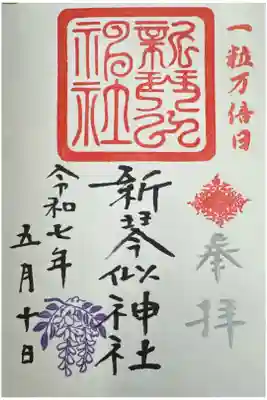 一粒万倍日
奉拝
新琴似神社
令和七年
五月十日
新琴似
神社